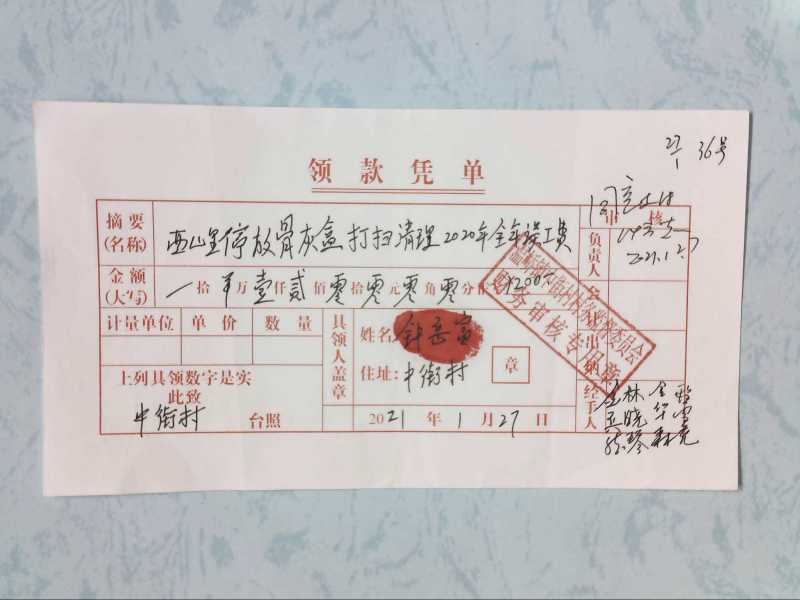 27/1 36号
领款凭单
同意支付
2021.1.27
审核
摘要(名称) 西山里停放骨灰盒打扫清理2020年全年误工费
负责人
金额(大写) 拾 万壹仟贰佰零拾零元零角零分 1200
财务审核专用章
会计
计量单位 单价 数量
具领人盖章
姓名
住址: 中街村
章
出纳
经手人
上列具领数字是实
此致
中街村 台照
2021年1月27日